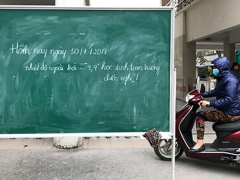 Hôm nay ngày 30/1/2019
nhiệt độ ngoài trời = 9,4° học sinh toàn trường
được nghỉ!